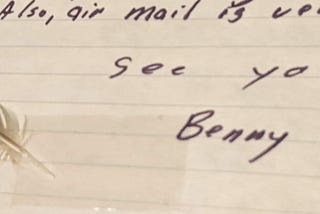 Also, air mail is
See
Benny